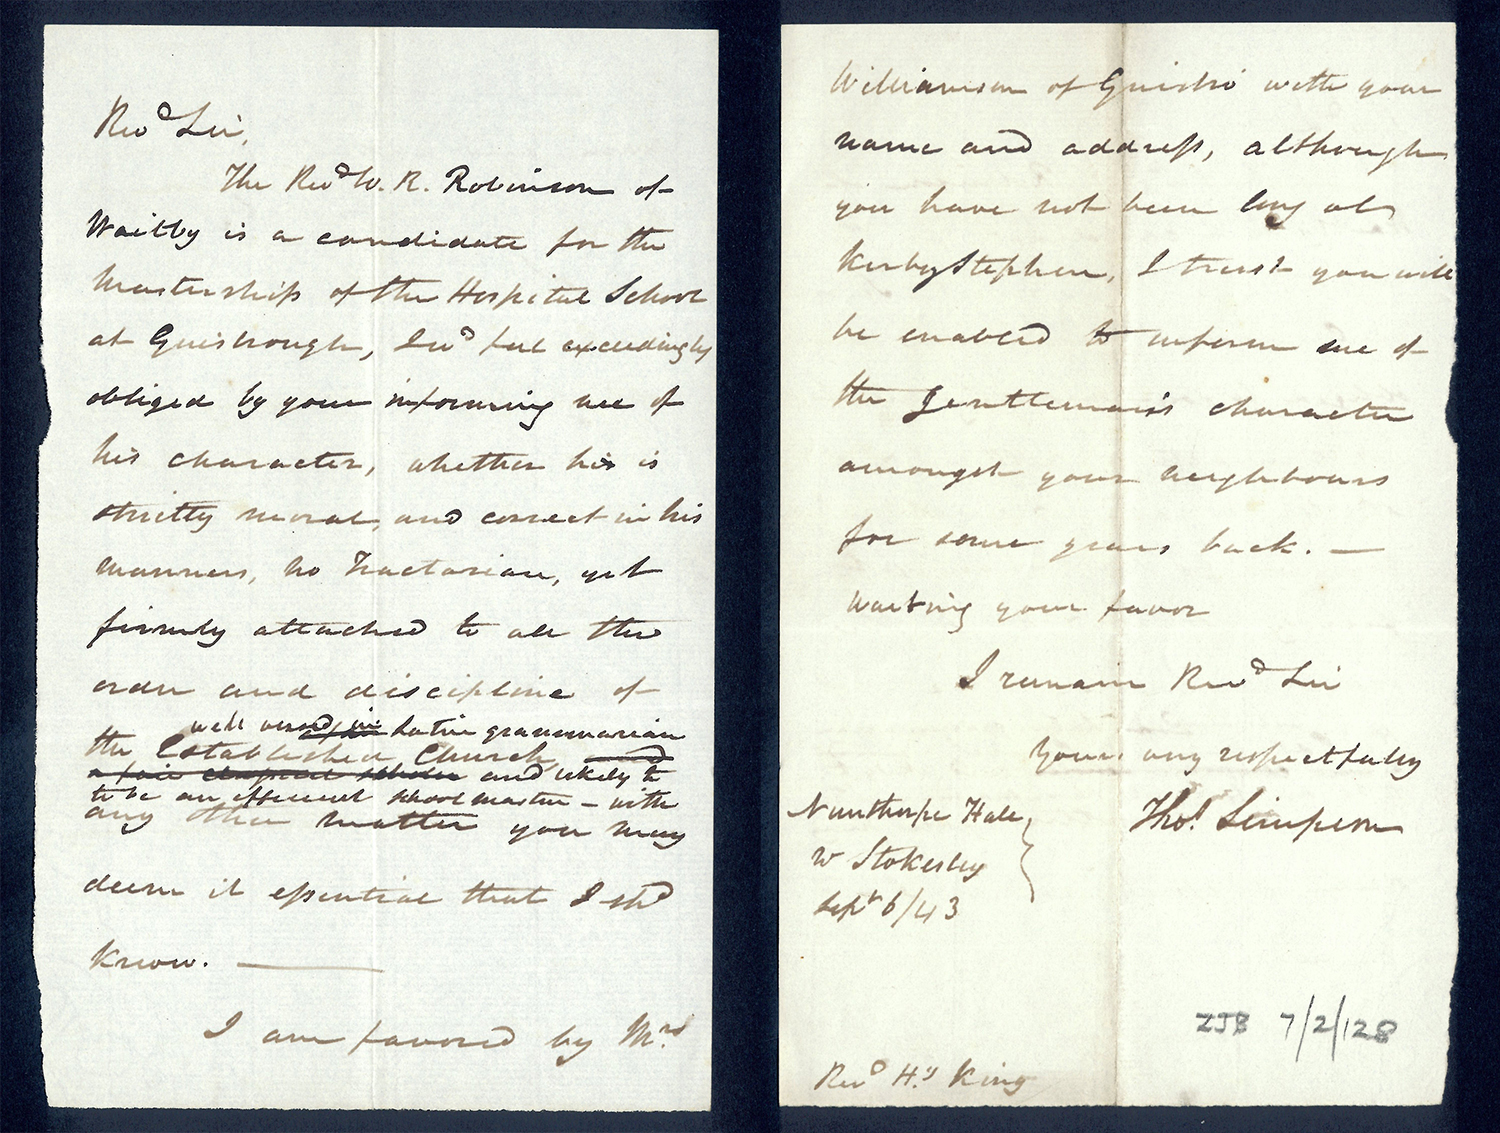 Revd Sir,
The Revd W. R. Robinson of
Waitby is a candidate for the
Mastership of the Hospital School
at Guisbrough, I wd feel exceedingly
obliged by your informing me of
his character, whether he is
strictly moral, and correct in his
manners, no Tractarian, yet
firmly attached to all the
order and discipline of
well versed in Latin grammarian
the Established Church and
a fair classical scholar and likely to
to be an efficient schoolmaster – with
any other matter you may
deem it essential that I shd
know. —
I am favored by Mrs
Williamson of Guisbro' with your
name and address, although
you have not been long at
Kirby Stephen, I trust you will
be enabled to inform me of
the Gentleman's character
amongst your neighbours
for some years back. —
Waiting your favor
I remain Revd Sir
Yours very respectfully
Thos. Simpson
Nunthorpe Hall
nr Stokesley
Sept 6/43
ZJB 7/2/128
Revd Hy King